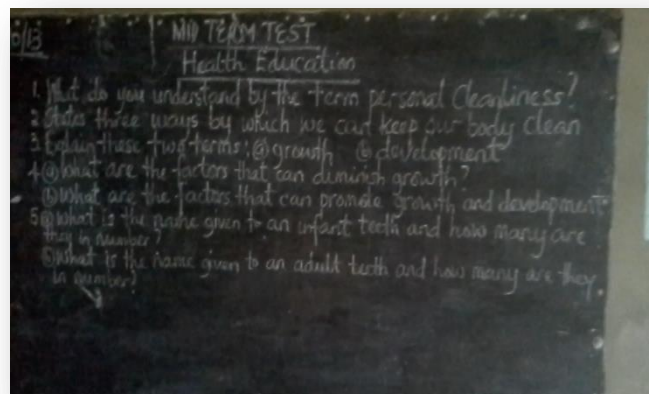 MID TERM TEST
Health Education
1. What do you understand by the term personal Cleanliness?
2 States three ways by which we can keep our body clean
3 Explain these two terms: (a) growth (b) development
4 (a) What are the factors that can diminish growth?
(b) What are the factors that can promote growth and development
5 (a) What is the name given to an infant teeth and how many are
they in number?
(b) What is the name given to an adult teeth and how many are they
in number?